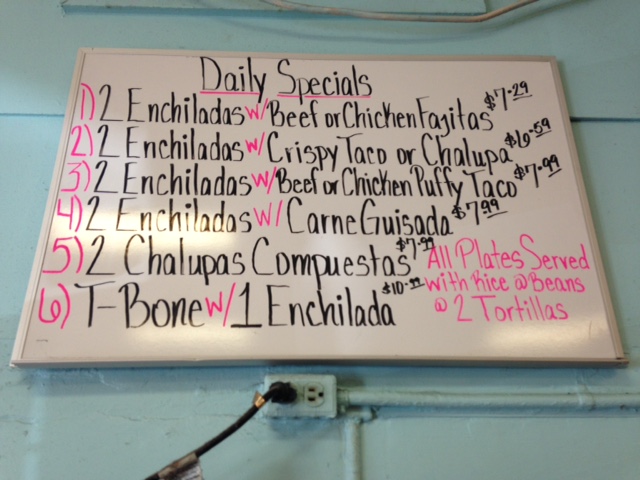 Daily Specials
1) 2 Enchiladas w/ Beef or Chicken Fajitas $7.29
2) 2 Enchiladas w/ Crispy Taco or Chalupa $6.59
3) 2 Enchiladas w/ Beef or Chicken Puffy Taco $7.99
4) 2 Enchiladas w/ Carne Guisada $7.99
5) 2 Chalupas Compuestas $7.99
6) T-Bone w/ 1 Enchilada $10.99
All Plates Served
with Rice @ Beans
@ 2 Tortillas